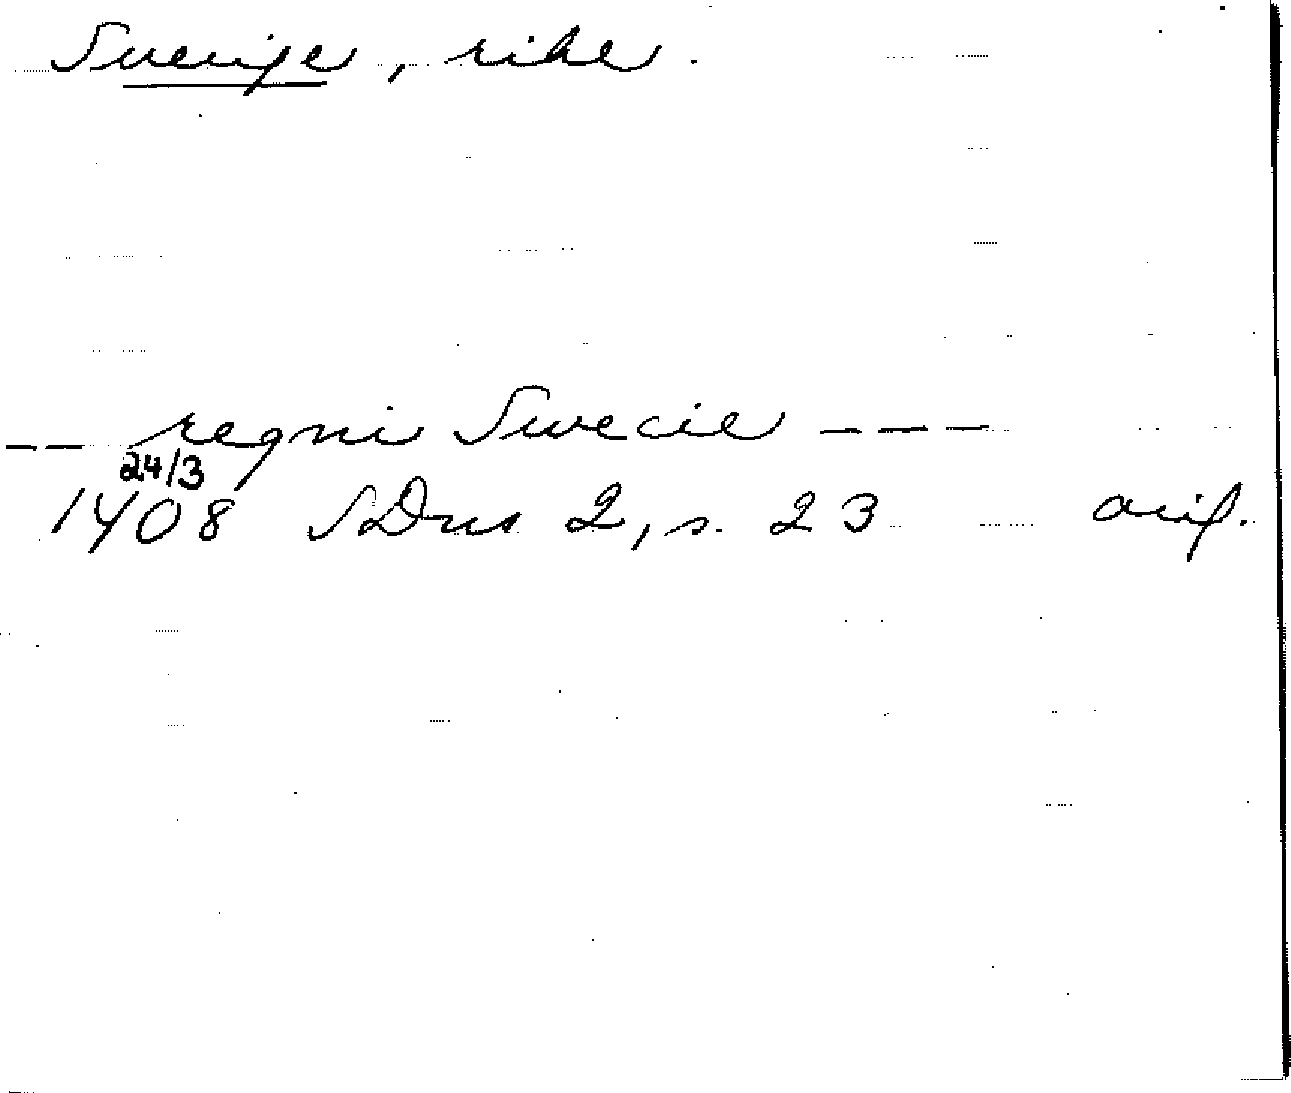 Sverige, rike.
-- regni Swecie ---
24/3
1408 SDns 2, s. 23 orig.